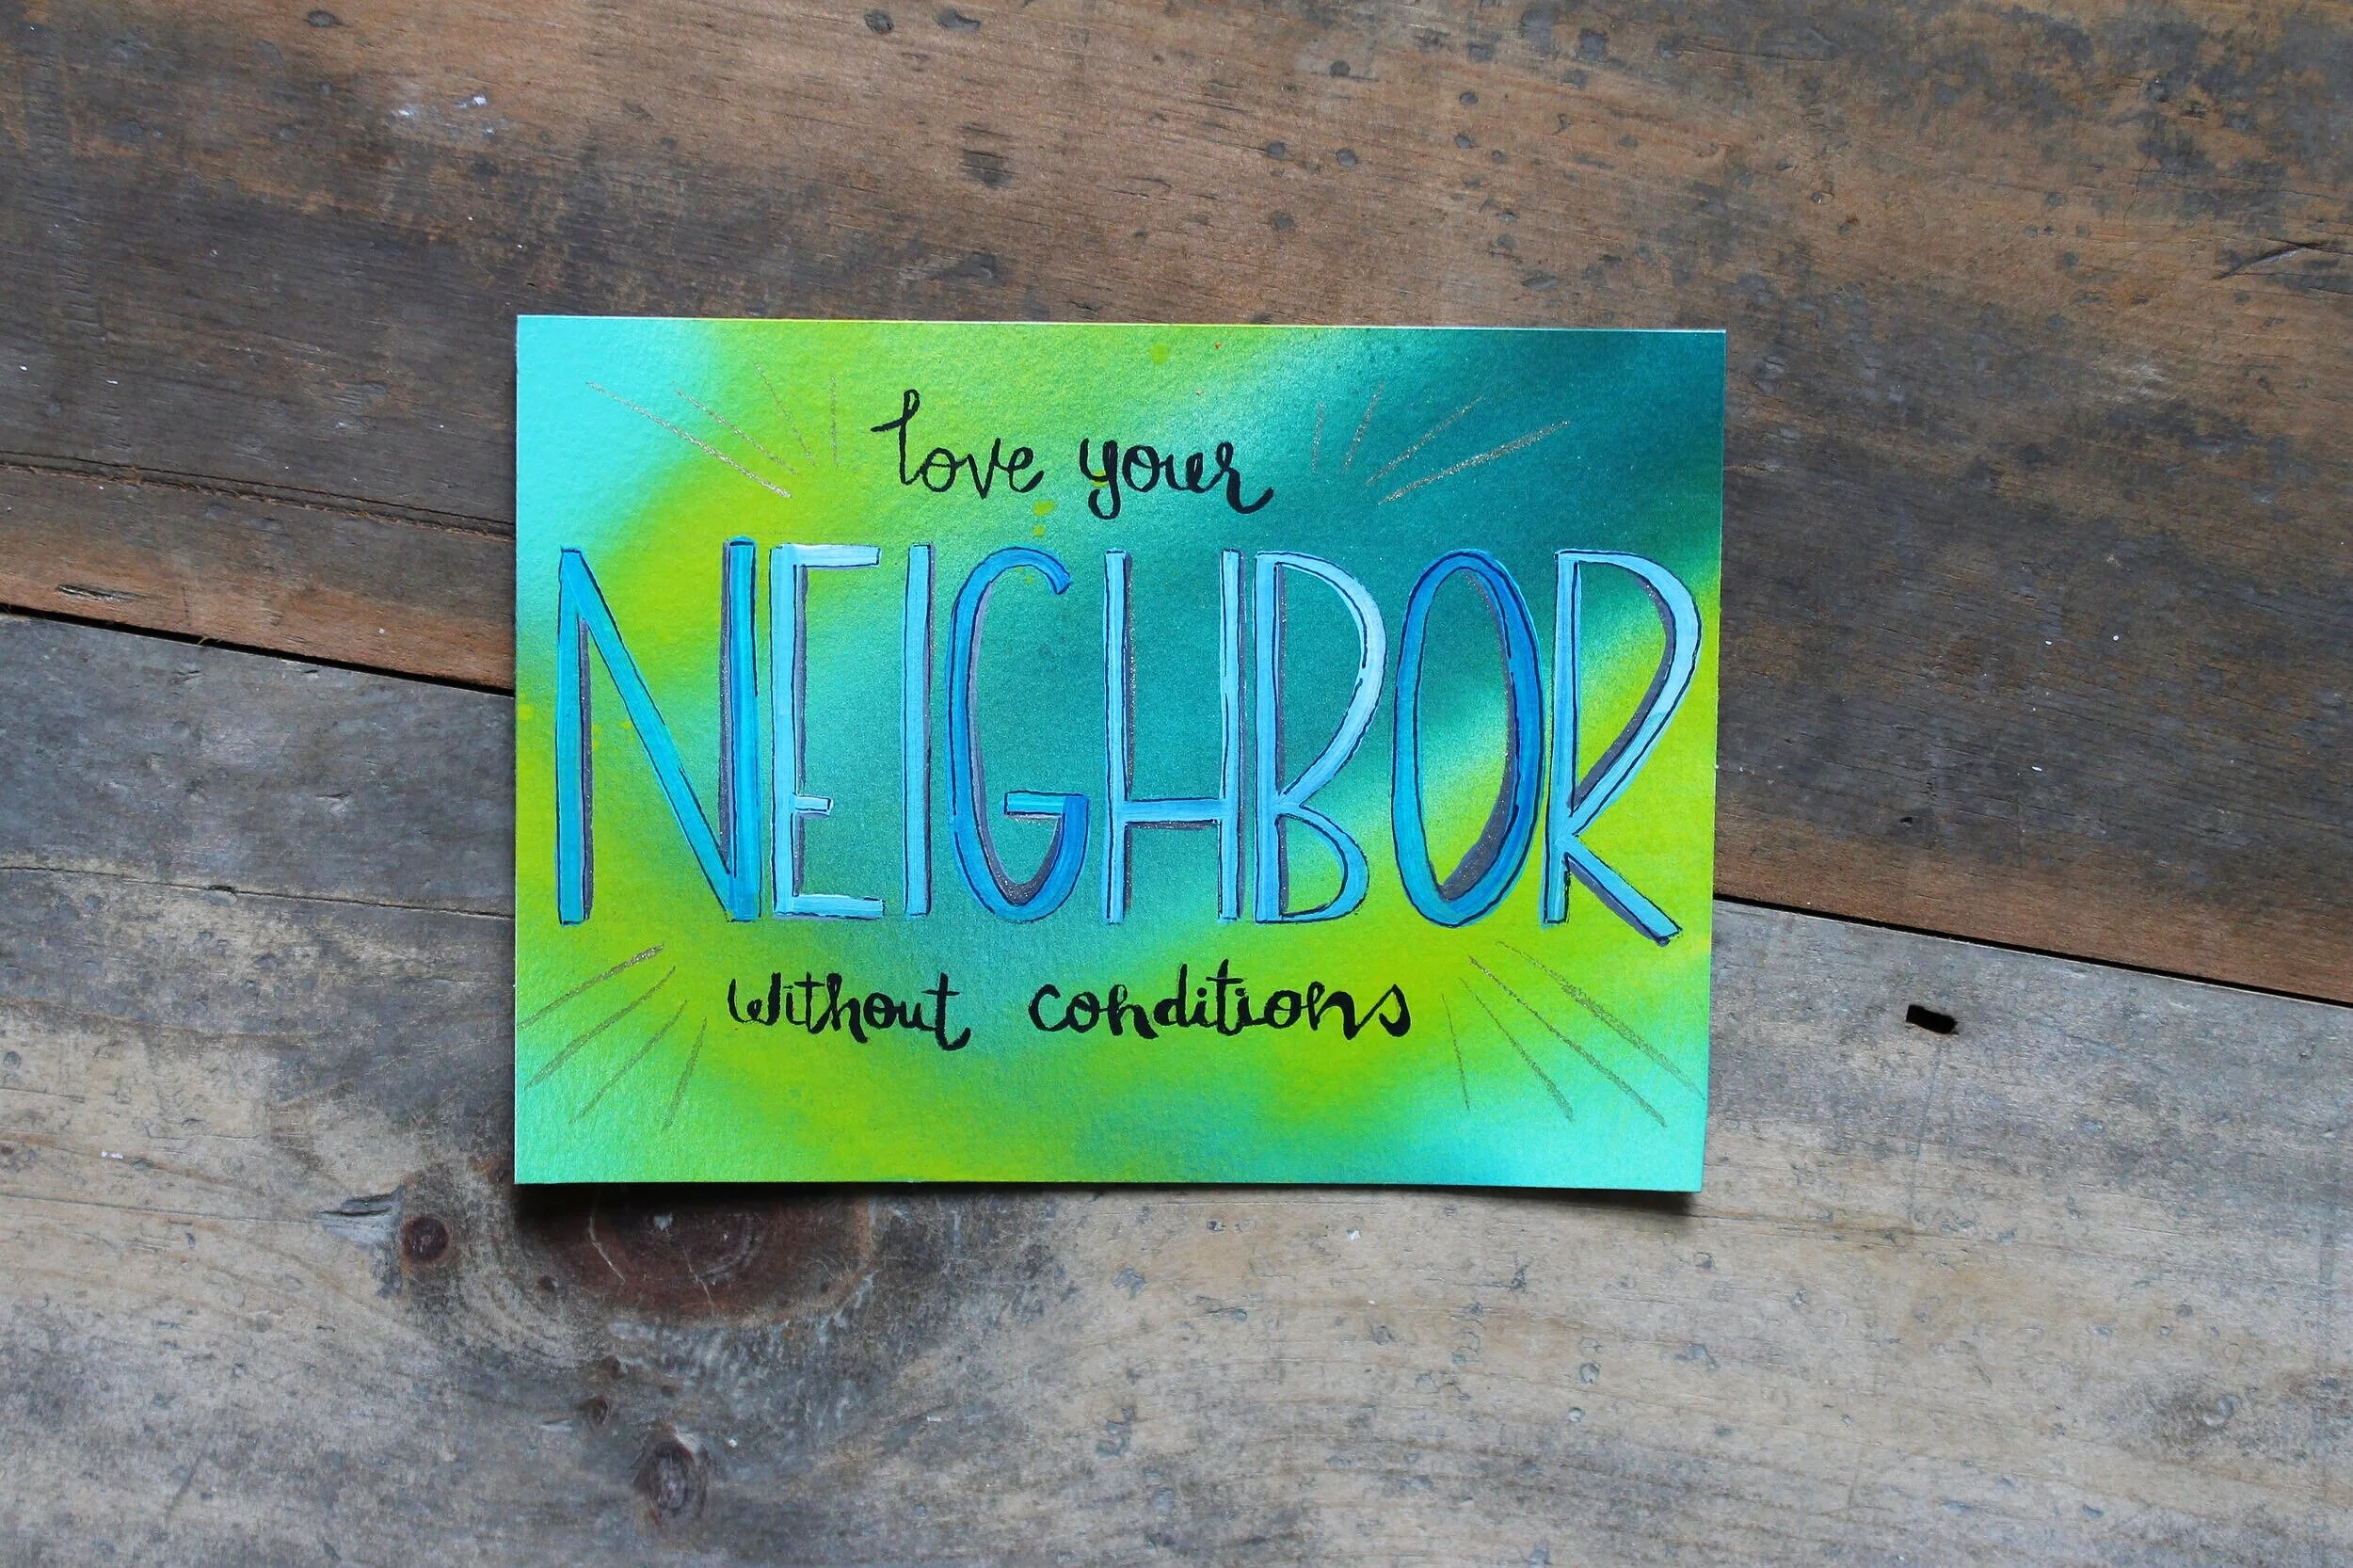 love your
NEIGHBOR
without conditions